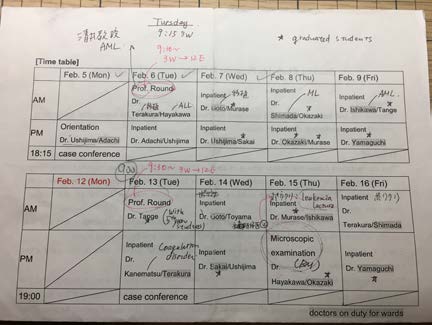 Tuesday
9:15 3W
AML
★ graduated students
[Time table]
Feb. 5 (Mon) Feb. 6 (Tue) Feb. 7 (Wed) Feb. 8 (Thu) Feb. 9 (Fri)
9:10~
3W→12E
AM
Prof. Round
Dr.
Terakura/Hayakawa
ALL
Inpatient
Dr. Goto/Murase
Inpatient ML
Dr.
Shimada/Okazaki
Inpatient AML
Dr. Ishikawa/Tange
PM
Orientation
Dr. Ushijima/Adachi
Inpatient
Dr. Adachi/Ushijima
Inpatient
Dr. Ushijima/Sakai
Inpatient
Dr. Okazaki/Murase
Inpatient
Dr. Yamaguchi
18:15 case conference
9:00 9:30~ 3W→12E
Feb. 12 (Mon) Feb. 13 (Tue) Feb. 14 (Wed) Feb. 15 (Thu) Feb. 16 (Fri)
AM
Prof. Round
Dr. Tange (with 5th year students)
Inpatient
Dr. Goto/Toyama
Leukemia lecture
Inpatient
Dr. Murase/Ishikawa
Inpatient
Dr.
Terakura/Shimada
PM
Inpatient Coagulation disorder
Dr.
Kanematsu/Terakura
Inpatient
Dr. Sakai/Ushijima
Microscopic
examination
Dr.
Hayakawa/Okazaki
Inpatient
Dr. Yamaguchi
19:00 case conference
doctors on duty for wards